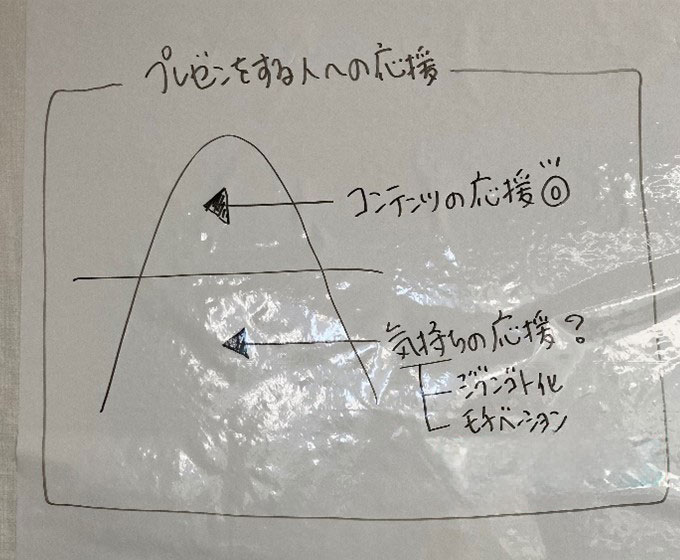 プレゼンをする人への応援
コンテンツの応援◎
気持ちの応援?
ジブンゴト化
モチベーション